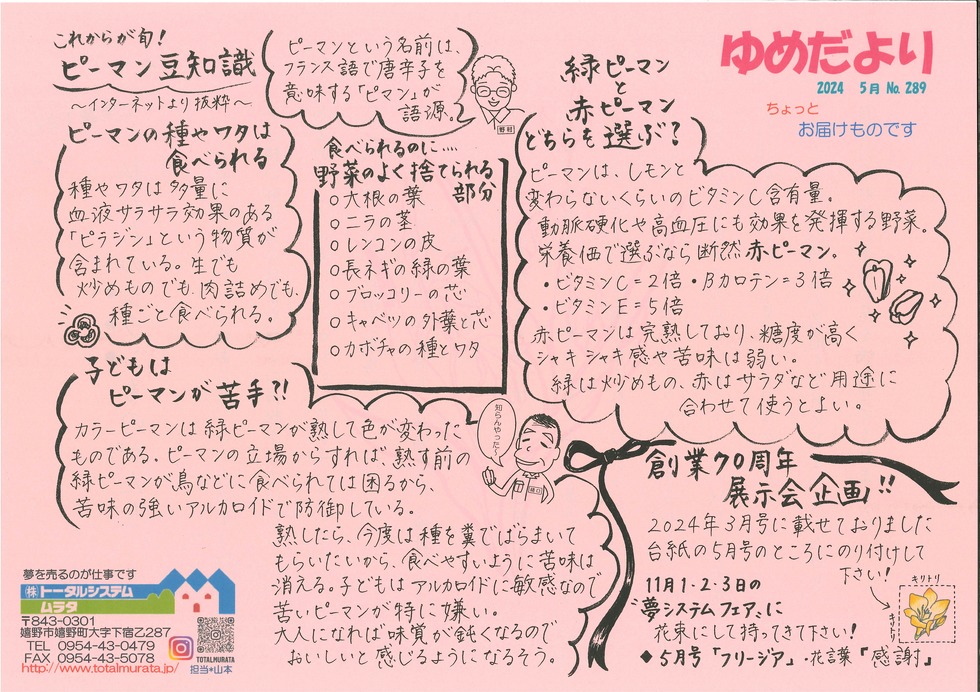 ゆめだより
2024 5月 No. 289
ちょっと
お届けものです
これからが旬!
ピーマン豆知識
～インターネットより抜粋～
ピーマンという名前は、
フランス語で唐辛子を
意味する「ピマン」が
語源。
野村
ピーマンの種やワタは
食べられる
種やワタは多量に
血液サラサラ効果のある
「ピラジン」という物質が
含まれている。生でも
炒めものでも、肉詰めでも、
種ごと食べられる。
食べられるのに….
野菜のよく捨てられる
部分
○大根の葉
○ニラの茎
○レンコンの皮
○長ネギの緑の葉
○ブロッコリーの芯
○キャベツの外葉と芯
○カボチャの種とワタ
緑ピーマン
と
赤ピーマン
どちらを選ぶ?
ピーマンは、レモンと
変わらないくらいのビタミンC含有量。
動脈硬化や高血圧にも効果を発揮する野菜。
栄養価で選ぶなら断然赤ピーマン。
・ビタミンC=2倍・Bカロテン=3倍
・ビタミンE=5倍
赤ピーマンは完熟しており、糖度が高く
シャキシャキ感や苦味は弱い。
緑は炒めもの、赤はサラダなど用途に
合わせて使うとよい。
子どもは
ピーマンが苦手?!
カラーピーマンは緑ピーマンが熟して色が変わった
ものである。ピーマンの立場からすれば、熟す前の
緑ピーマンが鳥などに食べられては困るから、
苦味の強いアルカロイドで防御している。
熟したら、今度は種を糞でばらまいて
もらいたいから、食べやすいように苦味は
消える。子どもはアルカロイドに敏感なので
苦いピーマンが特に嫌い。
大人になれば味覚が鈍くなるので
おいしいと感じるようになるそう。
知らんやった～
創業70周年
展示会企画!!
2024年3月号に載せておりました
台紙の5月号のところにのり付けして
下さい!
11月1・2・3日の
"夢システムフェア"に
花束にして持ってきて下さい!
◆5月号「フリージア」・花言葉「感謝」
キリトリ
キリトリ
夢を売るのが仕事です
㈱トータルシステム
ムラタ
〒843-0301
嬉野市嬉野町大字下宿乙287
TEL 0954-43-0479
FAX 0954-43-5078
http://www.totalmurata.jp/
TOTALMURATA
担当*山本